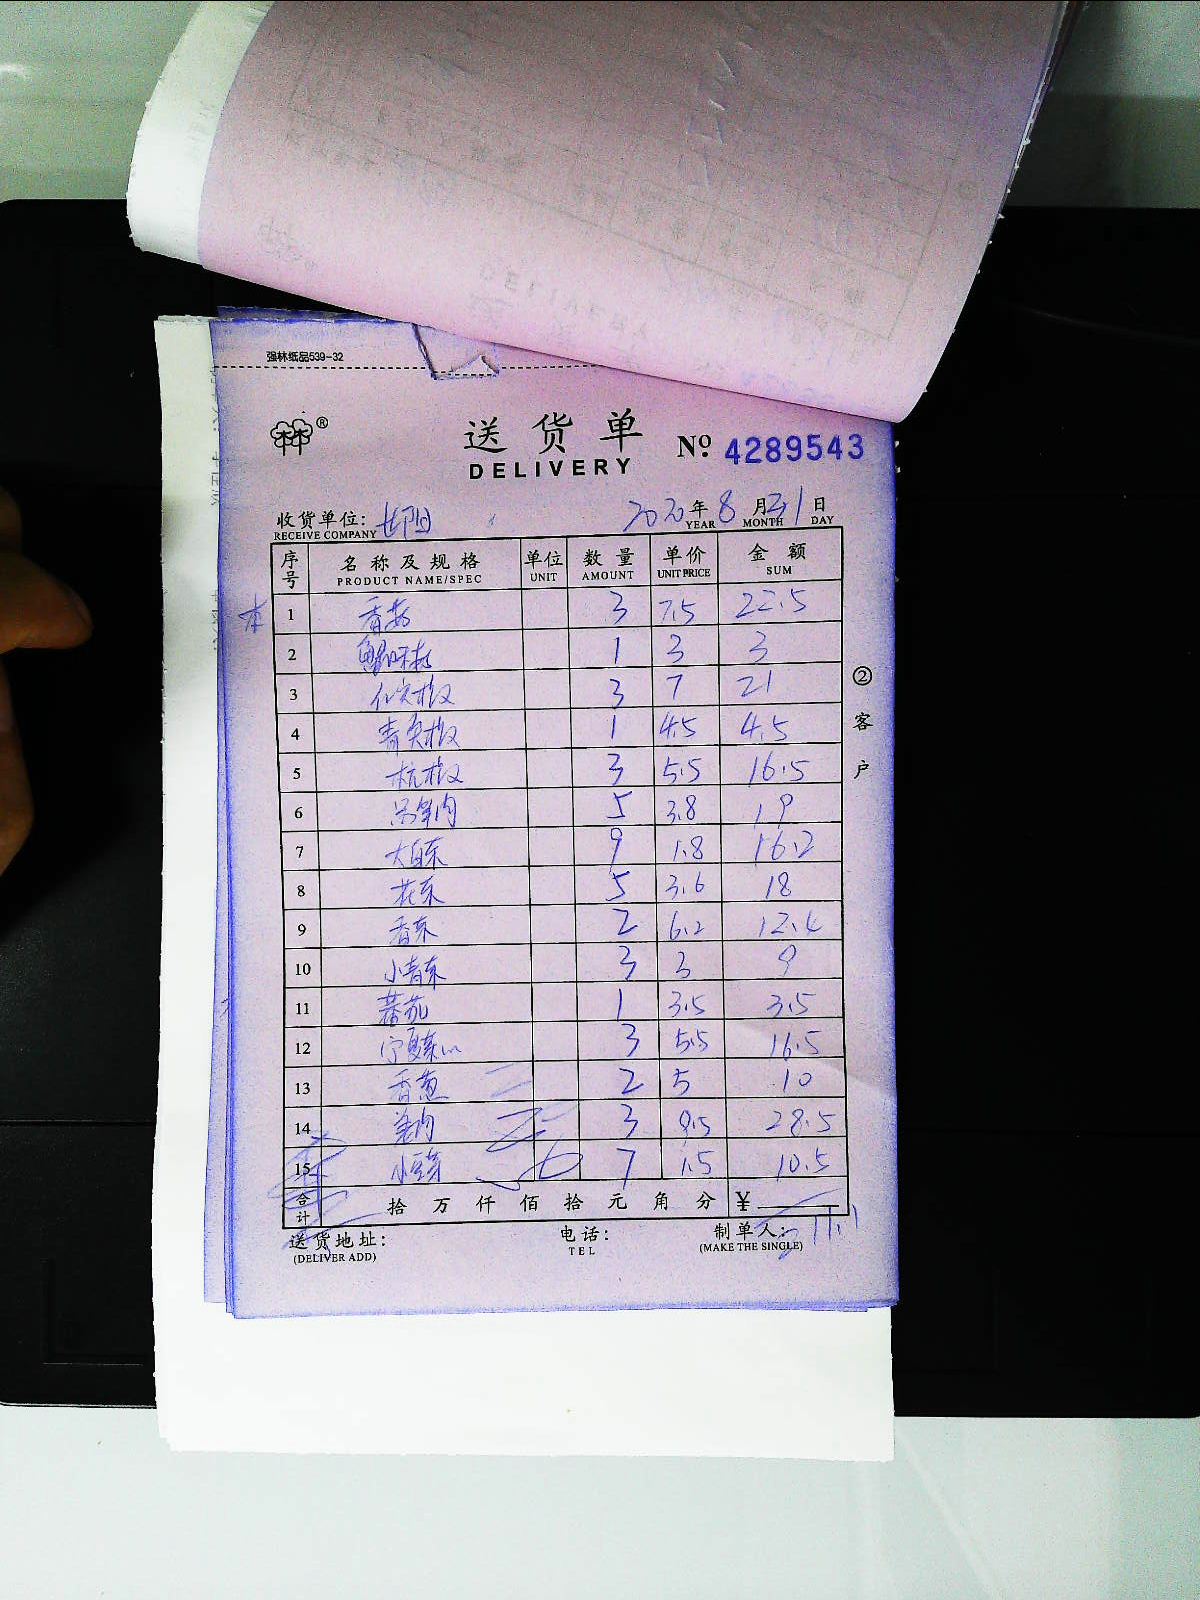 强林纸品539-32
林®
送货单
DELIVERY
№ 4289543
收货单位:
RECEIVE COMPANY
2020年8月31日
YEAR MONTH DAY
序号 名称及规格 单位 数量 单价 金额
PRODUCT NAME/SPEC UNIT AMOUNT UNIT PRICE SUM
1 香菇 3 7.5 22.5
2 1 3 3
3 3 7 21
4 青尖椒 1 4.5 4.5
5 杭椒 3 5.5 16.5
6 5 3.8 19
7 大白东 9 1.8 16.2
8 花东 5 3.6 18
9 香东 2 6.2 12.4
10 小青东 3 3 9
11 蕃茄 1 3.5 3.5
12 宁夏东 3 5.5 16.5
13 香葱 2 5 10
14 姜肉 3 9.5 28.5
15 小豆芽 7 1.5 10.5
合计 拾万仟佰拾元角分 ¥
送货地址:
(DELIVER ADD)
电话:
TEL
制单人:
(MAKE THE SINGLE)
②客户